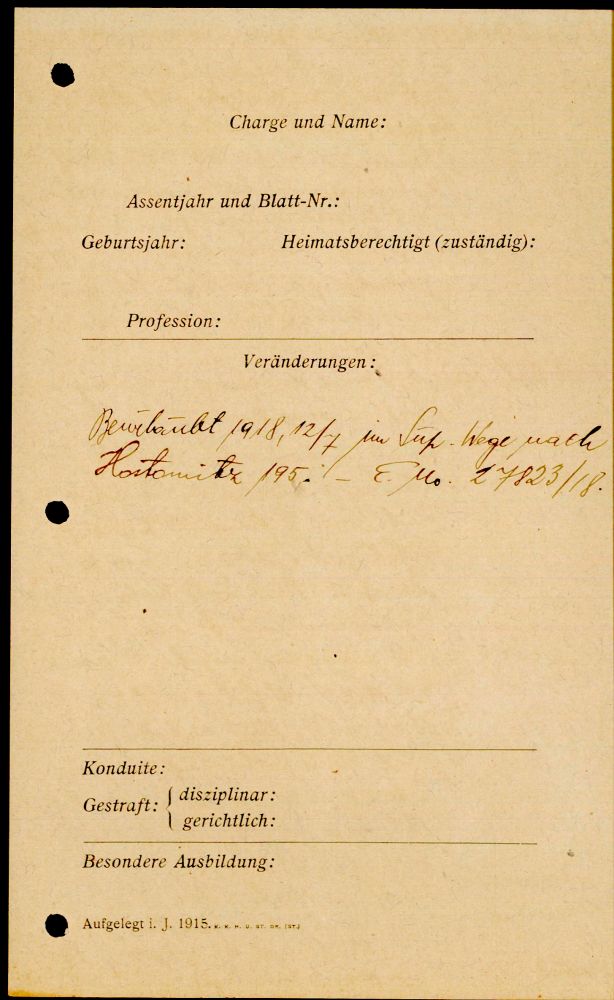 Charge und Name:
Assentjahr und Blatt-Nr.:
Geburtsjahr: Heimatsberechtigt (zuständig):
Profession:
Veränderungen:
Beurlaubt 1918, 12/7 im Sup. Wege nach
Hostomitz 195. – E. No. 27823/18.
Konduite:
Gestraft: { disziplinar:
gerichtlich:
Besondere Ausbildung:
Aufgelegt i. J. 1915. K. K. H. U. ST. DR. (ST.)